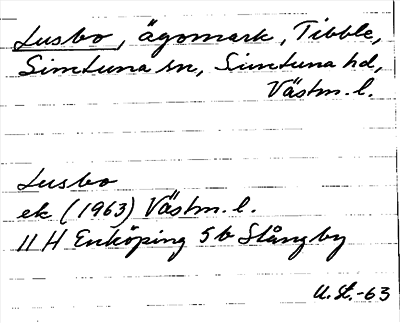 Lusbo, ägomark, Tibble,
Simtuna sn, Simtuna hd,
Västm. l.
Lusbo
ek (1963) Västm. l.
11 H Enköping 5 b Slångby
U. L. -63